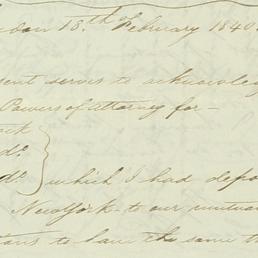 don 18.th of February 1840.
sent serves to acknowledg
Powers of Attorney for—
ock
do.
do. } which I had depo
New York to our mutua
tans to have the same th